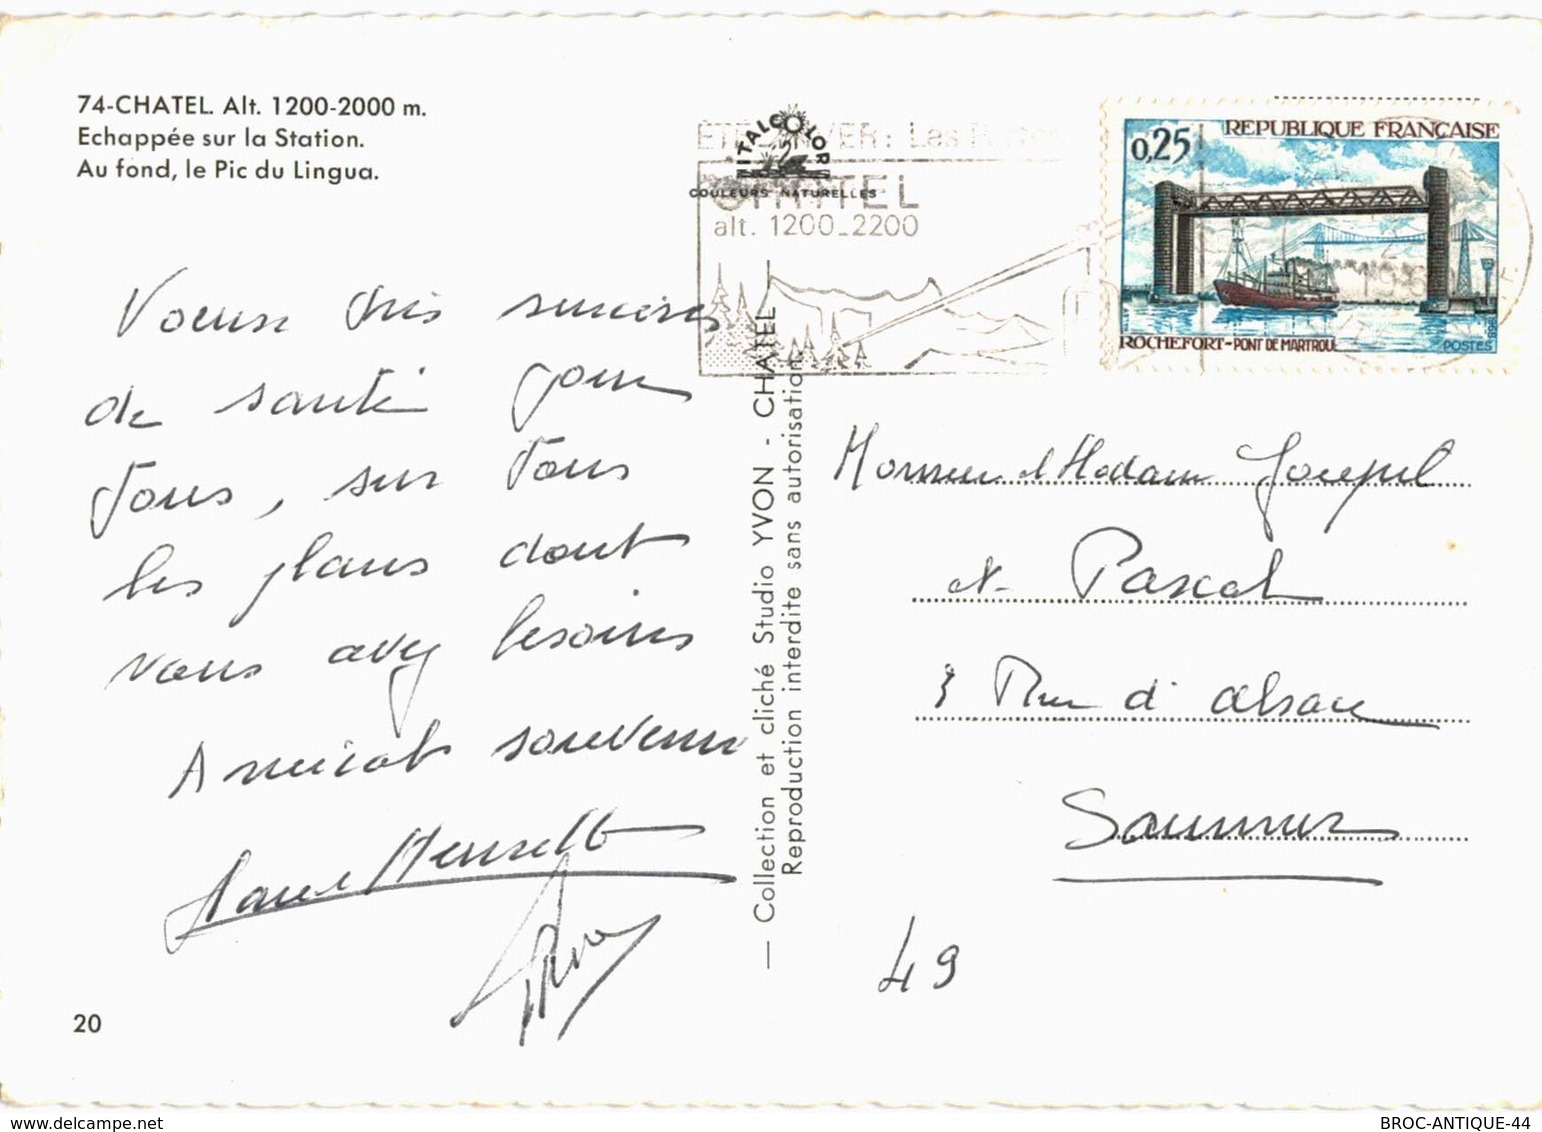 74-CHATEL. Alt. 1200-2000 m.
Echappée sur la Station.
Au fond, le Pic du Lingua.
ITALCOLOR
COULEURS NATURELLES
CHATEL
alt. 1200_2200
0,25 REPUBLIQUE FRANÇAISE
ROCHEFORT-PONT DE MARTROU
POSTES
Voeux très sincères
de santé pour
tous, sur tous
les plans dont
vous avez besoins
Amical souvenir
— Collection et cliché Studio YVON - CHATEL
Reproduction interdite sans autorisation
Monsieur et Madame
et Pascal
Rue d'Alsace
Saumur
49
20
BROC-ANTIQUE-44